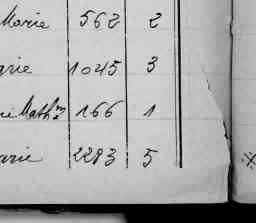 Marie 562 2
arie 1045 3
rie Math^me 166 1
arie 2293 5